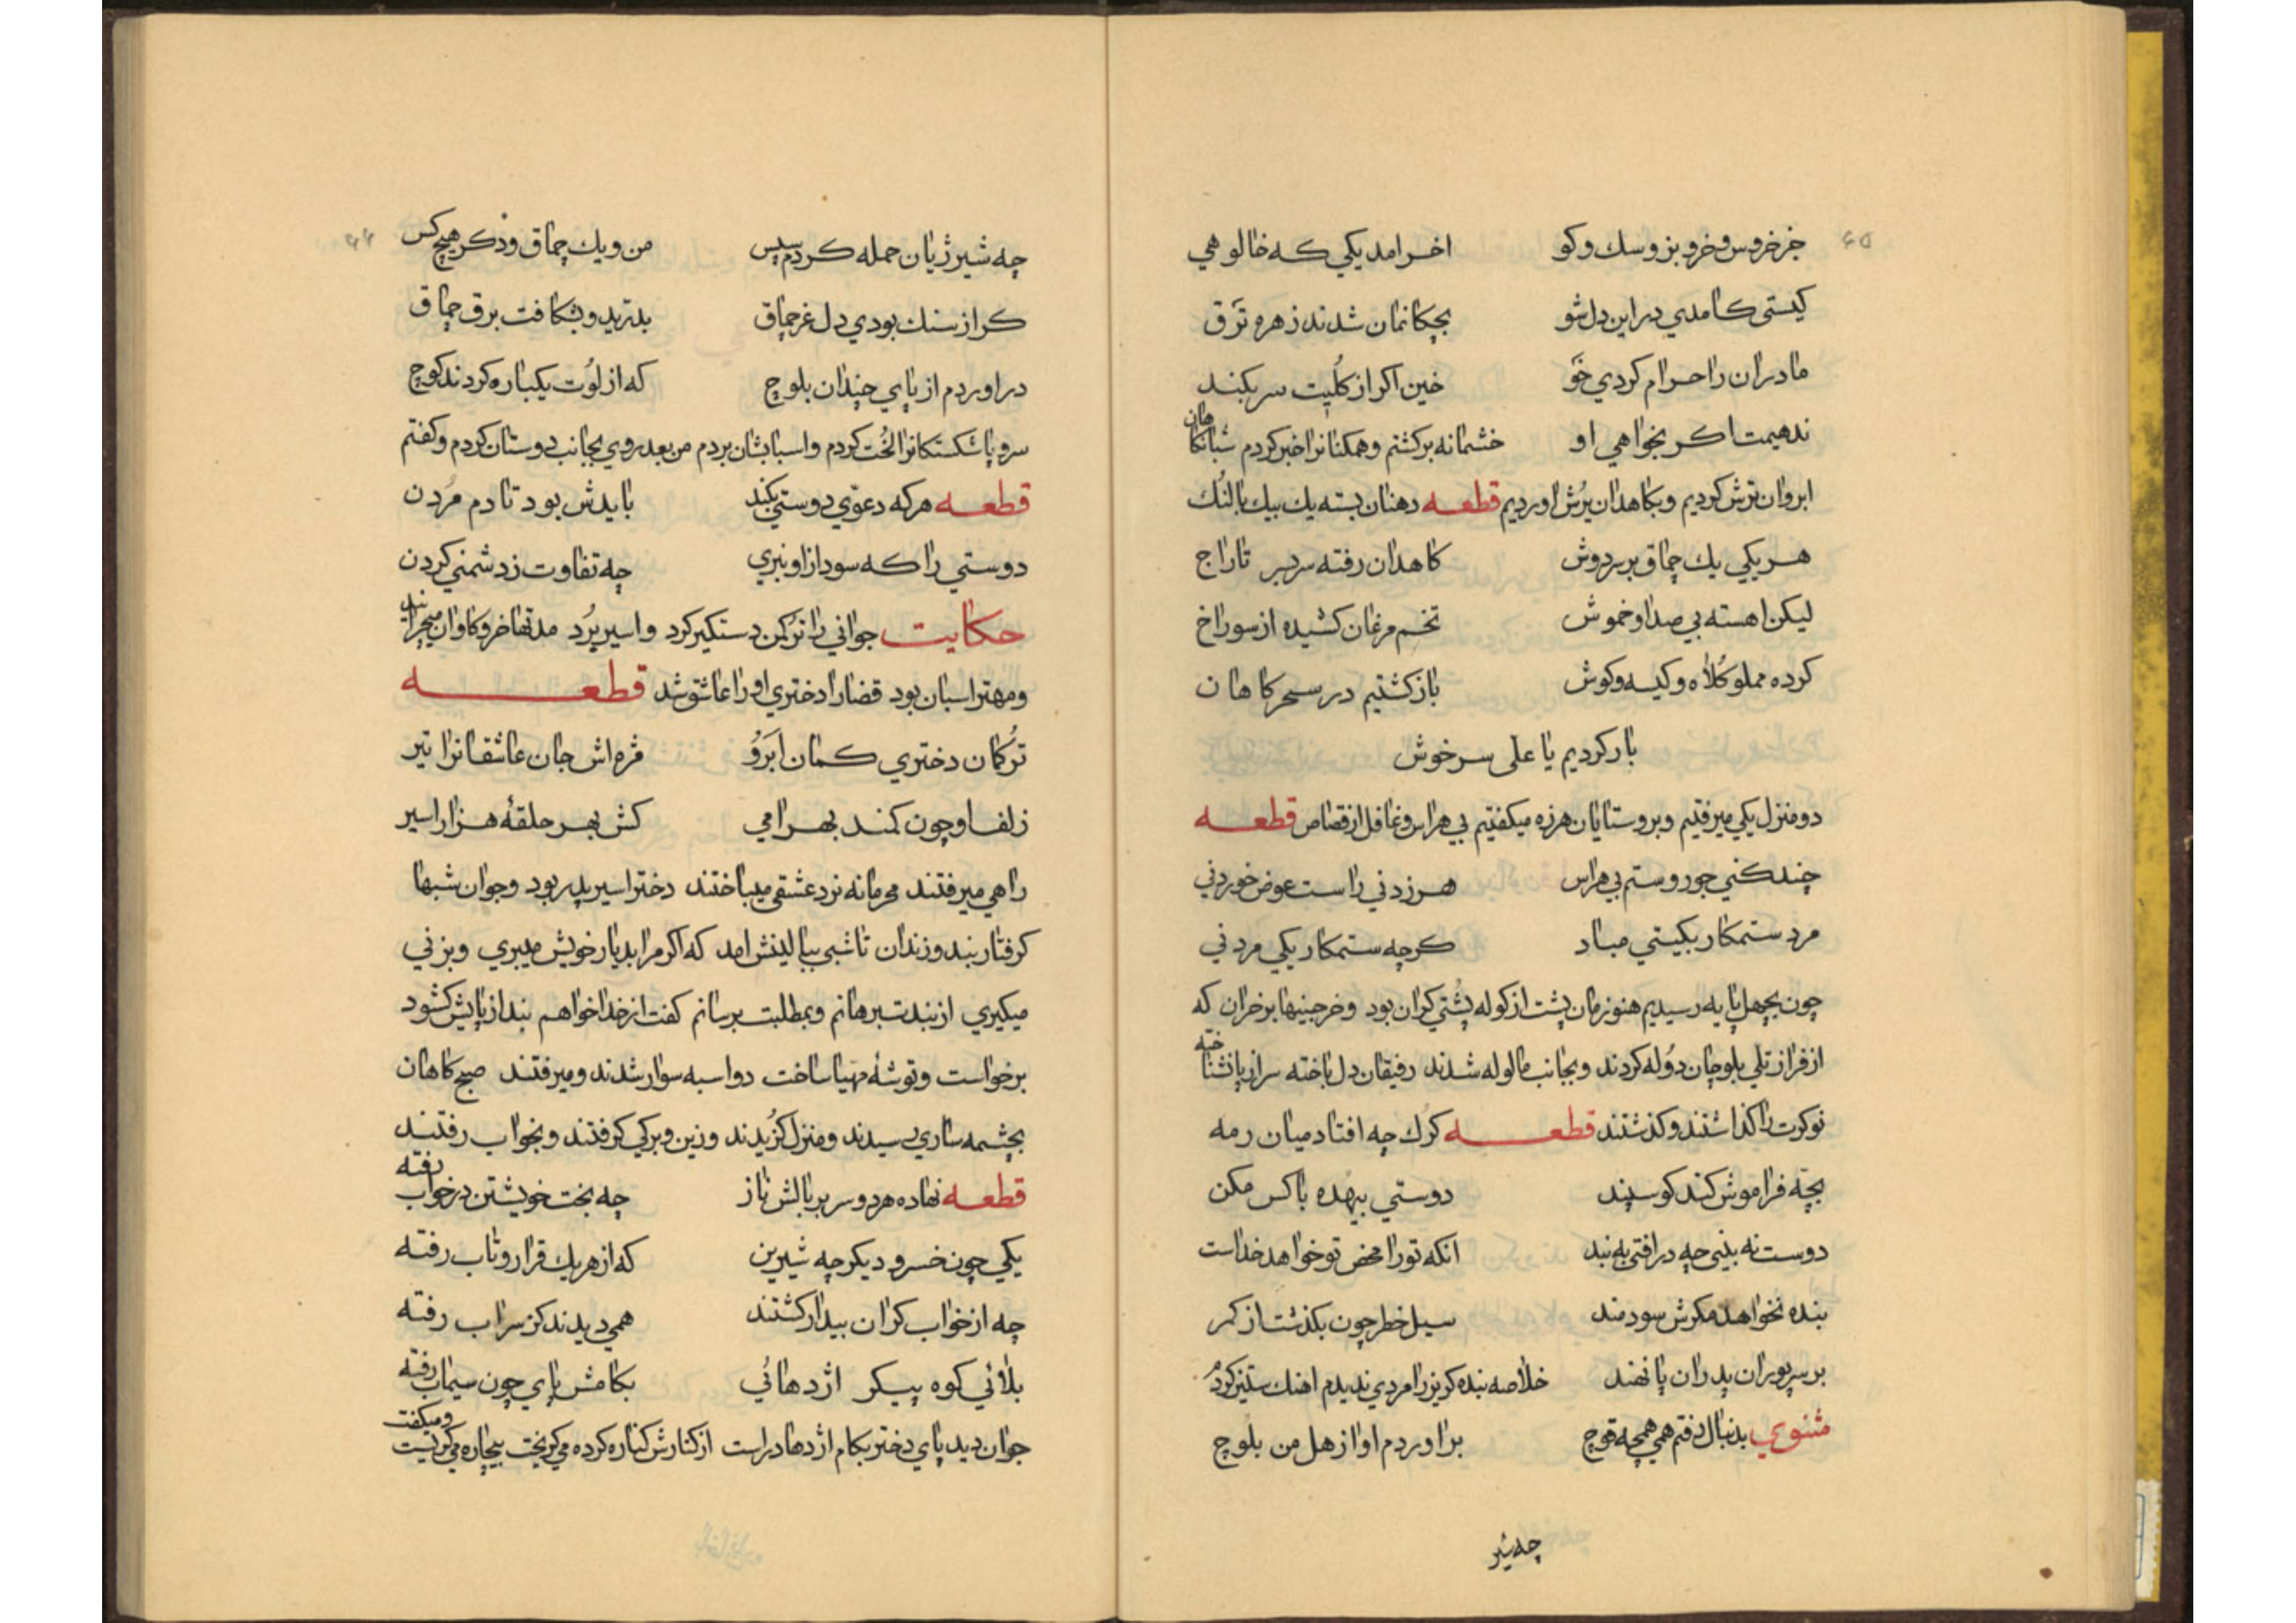 ۶۵
جز خروس و خر و بز و سك و كو اخر امد يكي كه خالو هي
كيستی كامدي در اين دل شو بچكانمان شدند زهره ترق
مادران را حرام كردي خو خين اكر از كليت سر بكند
ندهيمت اكر بخواهي او خشمانه بركشتم و همكنانرا خبر كردم شبانكاهان
ابروان ترش كرديم و بكاهدان يرش اورديم قطعه دهنان بسته يك بيك بالنك
هر يكي يك چماق بر سر دوش كاهدان رفته سر بسر تاراج
ليكن اهسته بي صدا و خموش تخم مرغان كشيده از سوراخ
كرده مملو كلاه و كيسه و كوش باز كشتيم در سحر كاهان
بار كرديم يا علی سرخوش
دو منزل يكي ميرفتيم و بروستايان هرزه ميكفتيم بي هراس و غافل از قصاص قطعه
چند كني جور و ستم بي هراس هر زدني راست عوض خوردني
مرد ستمكار بكيتي مباد كرچه ستمكار يكي مردني
چون بچهل پايه رسيديم هنوزمان پشت از كوله پشتي كران بود و خرجينها بر خران كه
از فراز تلي بلوچان دوله كردند و بجانب ما لوله شدند رفيقان دل باخته سر از پا نشناخته
نوكرت را كذاشتند و كذشتند قطعه كرك چه افتاد ميان رمه
بچه فراموش كند كوسپند دوستي بيهده با كس مكن
دوست نه بيني چه در افتی به بند انكه تو را محض تو خواهد خداست
بنده نخواهد مكرش سودمند سيل خطر چون بكذشت از كمر
بر سر پوران پدران پا نهند خلاصه بنده كريز را مردي نديدم اهنك ستيز كردم
مثنوي بدنبال رفتم همي همچه قوچ بر اوردم اواز هل من بلوچ
چه شير
۶۶
چه شير ژيان حمله كردم سپس من و يك چماق و ذكر هيچ كس
كر از سنك بودي دل غرچماق بدتريد و بشكافت برق چماق
در اوردم از پاي چندان بلوچ كه از لوت يكباره كردند كوچ
سر و پا شكستكانرا لخت كردم و اسبابشان بردم من بعد روي بجانب دوستان كردم و كفتم
قطعه هر كه دعوي دوستي بكند بايدش بود تا دم مردن
دوستي را كه سود از او نبري چه تفاوت ز دشمني كردن
حكايت جواني را تركمن دستكير كرد و اسير برد مدتها خر و كاوان ميچرانيد
و مهتر اسبان بود قضارا دختري او را عاشق شد قطعه
تركمان دختري كمان ابرو مژه اش جان عاشقانرا تير
زلف او چون كمند بهرامي كش بهر حلقهٔ هزار اسير
راهي ميرفتند محرمانه نرد عشقي ميباختند دختر اسير پدر بود و جوان شبها
كرفتار بند و زندان تا شبي ببالينش امد كه اكر مرا بديار خويش ميبري و بزني
ميكيري از بندت برهانم و بمطلبت برسانم كفت از خدا خواهم بند از پايش كشود
برخواست و توشهٔ مهيا ساخت دو اسبه سوار شدند و ميرفتند صبح كاهان
بچشمه ساري رسيدند و منزل كزيدند و زين و بركي كرفتند و بخواب رفتند
قطعه نهاده هر دو سر بر بالش ناز چه بخت خويشتن در خواب رفته
يكي چون خسرو ديكر چه شيرين كه از هر يك قرار و تاب رفته
چه از خواب كران بيدار كشتند همي ديدند كز سر اب رفته
بلائي كوه پيكر اژدهائي بكامش پاي چون سيماب رفته
جوان ديد پاي دختر بكام اژدها در است از كنارش كناره كرده مي كريخت بيچاره مي كريست و ميكفت